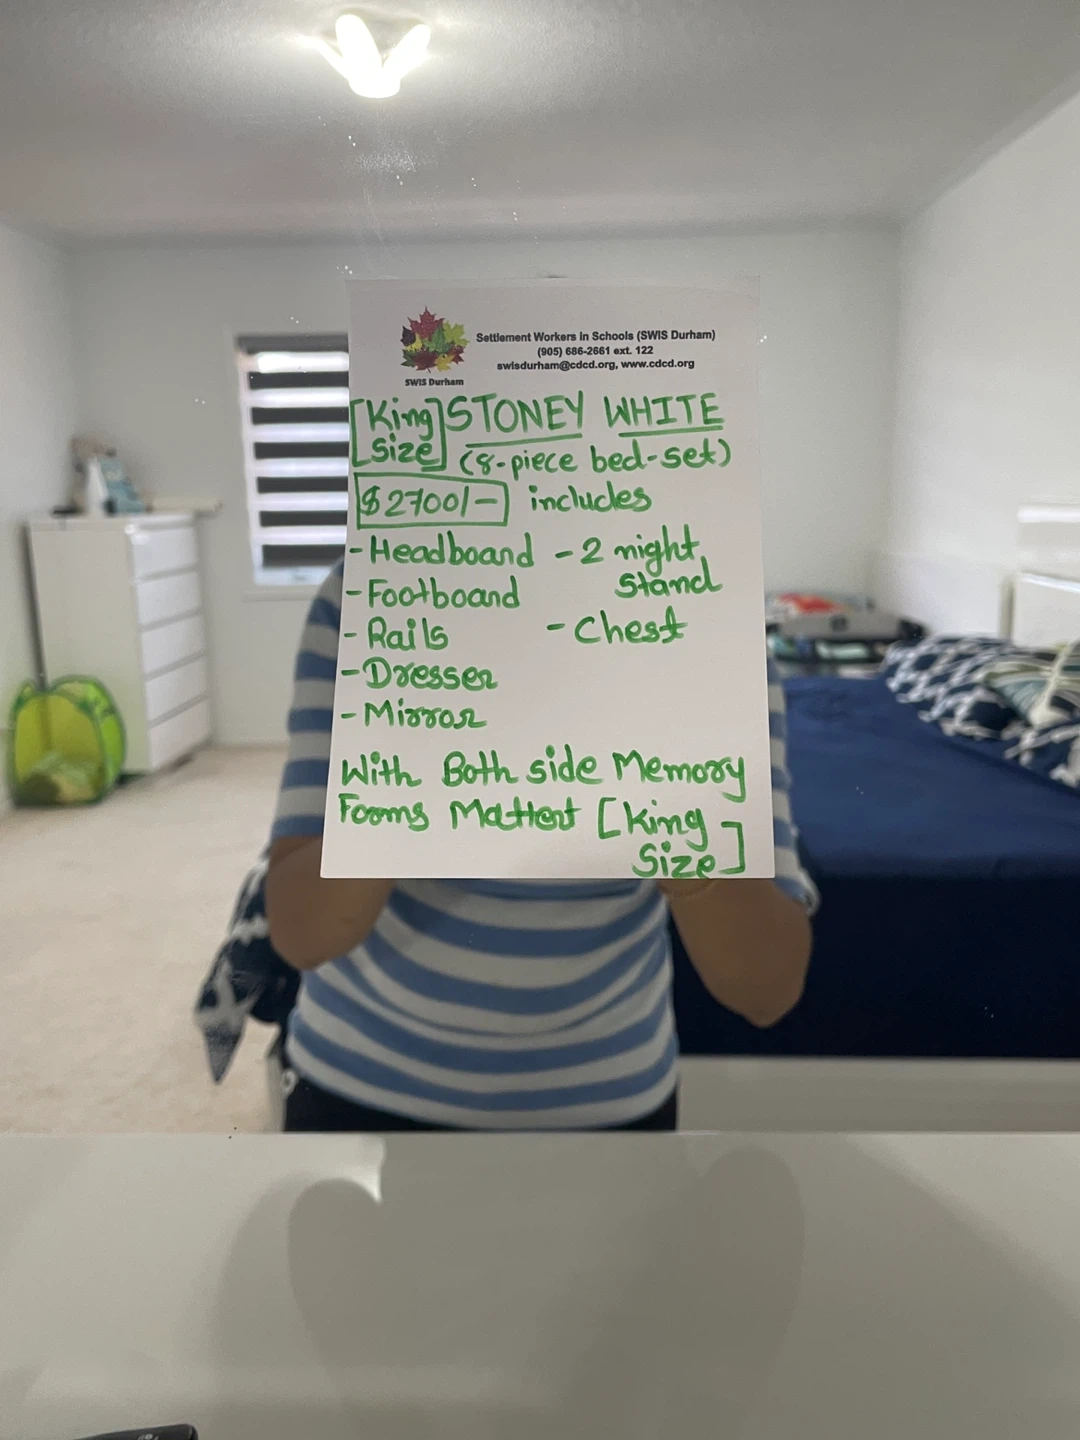 Settlement Workers in Schools (SWIS Durham)
(905) 686-2661 ext. 122
swisdurham@cdcd.org, www.cdcd.org
SWIS Durham
[King Size] STONEY WHITE
(8-piece bed-set)
$2700/- includes
- Headboard
- Footboard
- Rails
- Dresser
- Mirror
- 2 night stand
- Chest
With Both side Memory
Fooms Mattert [King
Size]